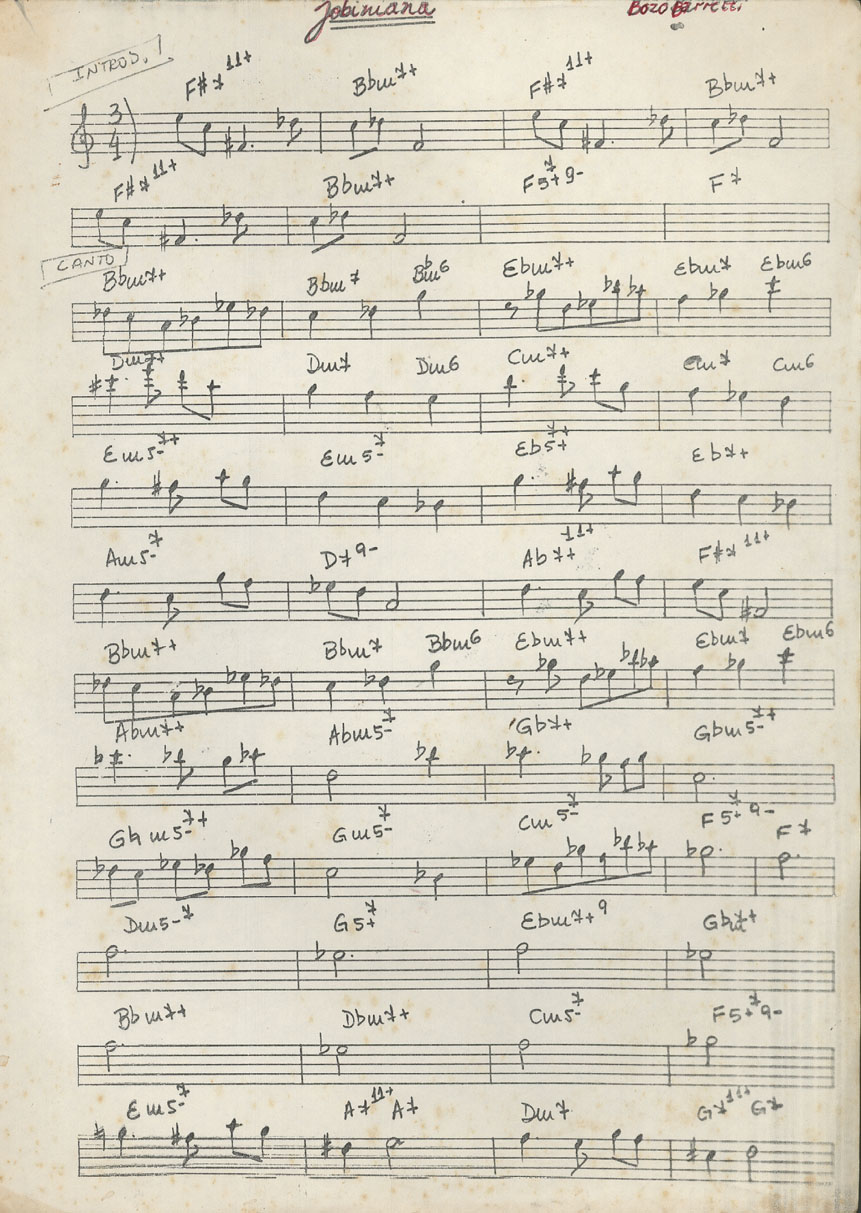 Jobiniana Bozo Barretti
INTROD.
F#7 11+ Bbm7+ F#7 11+ Bbm7+
3/4
F#7 11+ Bbm7+ F5+7 9- F7
CANTO
Bbm7+ Bbm7 Bbm6 Ebm7+ Ebm7 Ebm6
Dm7+ Dm7 Dm6 Cm7+ Cm7 Cm6
Em5-7+ Em5-7 Eb5+7+ Eb7+
Am5-7 D79- Ab7+11+ F#7 11+
Bbm7+ Bbm7 Bbm6 Ebm7+ Ebm7 Ebm6
Abm7+ Abm5-7 Gb7+ Gbm5-7+
G♮m5-7+ Gm5-7 Cm5-7 F5+7 9- F7
Dm5-7 G5+7 Ebm7+9 Gb7+
Bbm7+ Dbm7+ Cm5-7 F5+7 9-
Em5-7 A7 11+ A7 Dm7 G7 11+ G7